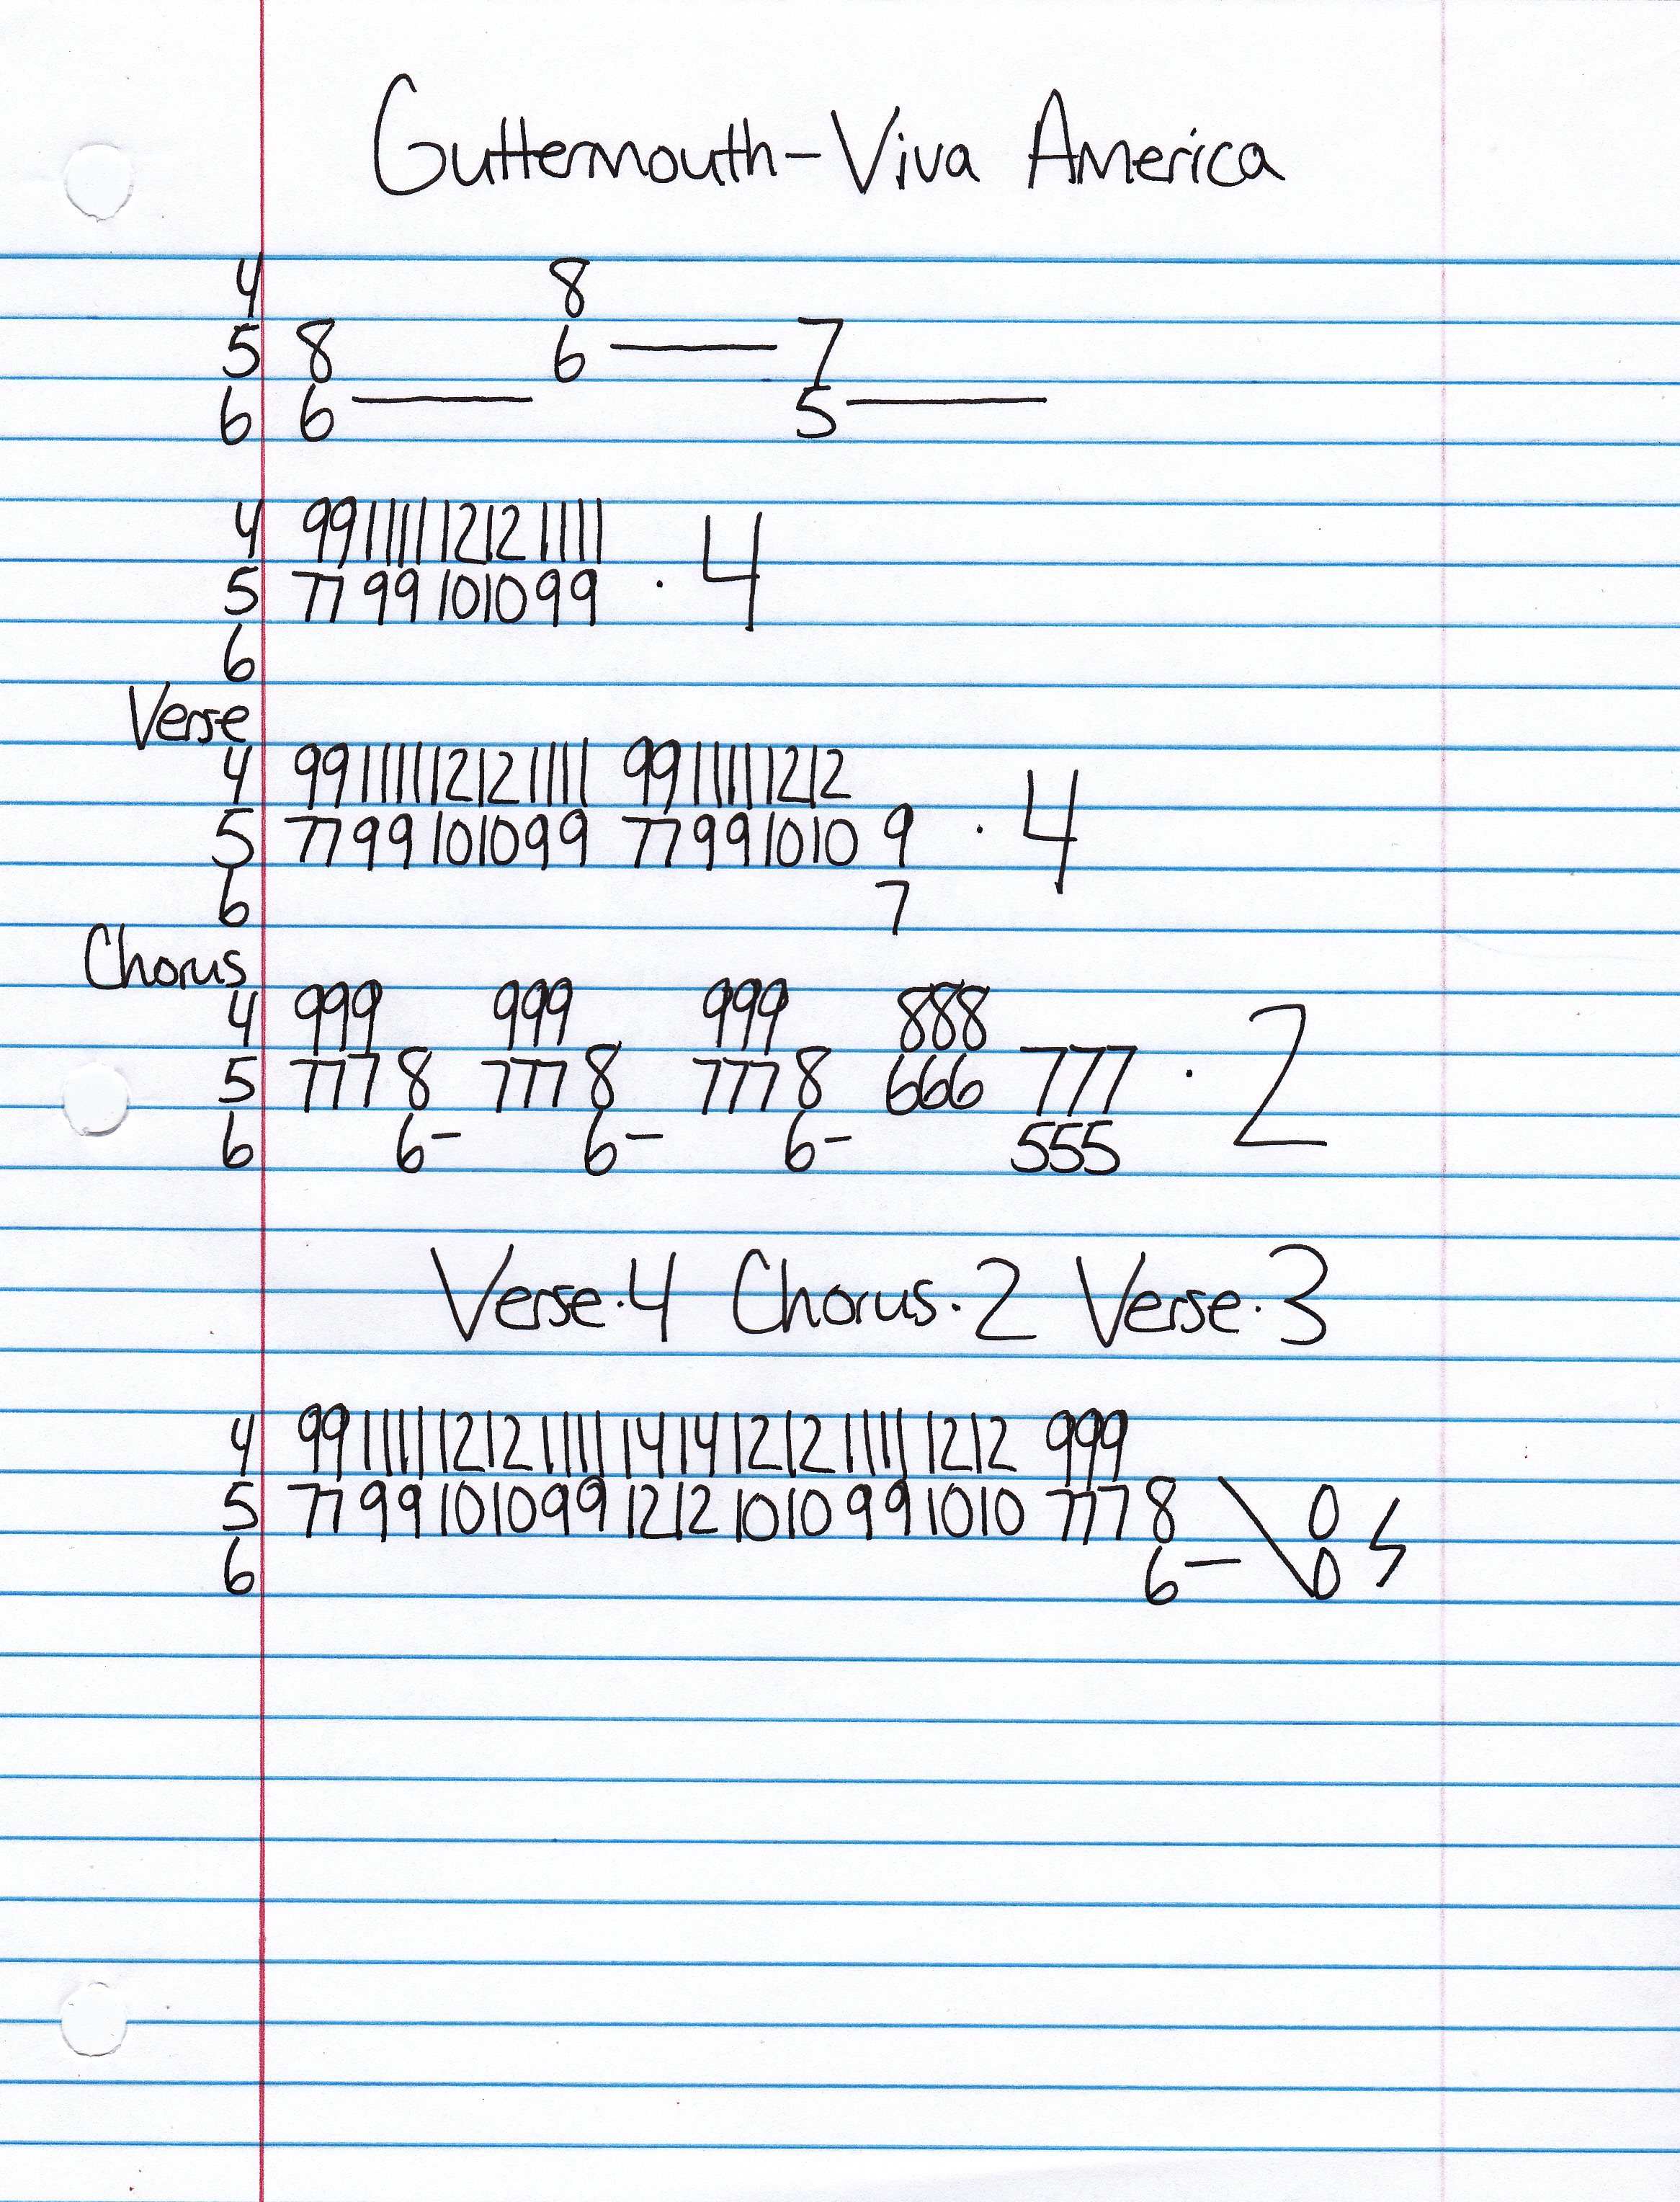 Guttermouth-Viva America
4 8
5 8 6 — 7
6 6 — 5 —
4 99111112121111
5 7799101099 · 4
6
Verse
4 99111112121111 9911111212
5 7799101099 77991010 9 · 4
6 7
Chorus
4 999 999 999 888
5 7778 7778 7778 666 777 · 2
6 6- 6- 6- 555
Verse·4 Chorus·2 Verse·3
4 991111121211111414121211111212 999
5 779910109912121010991010 7778 \ 0
6 6- 0